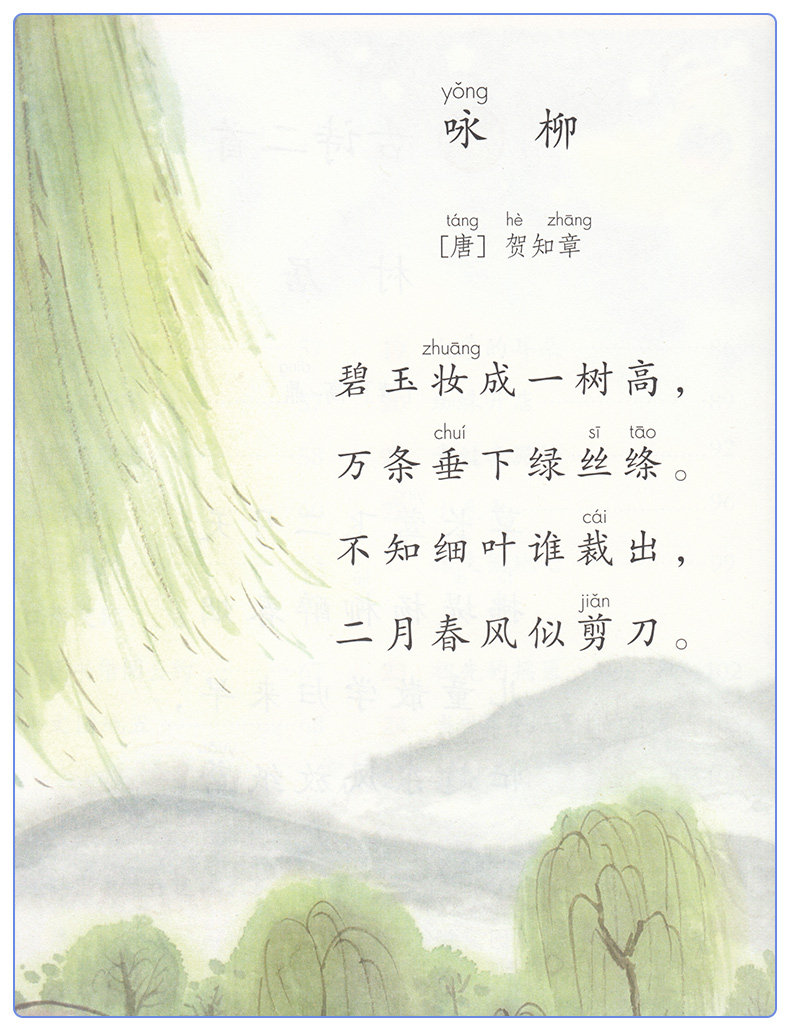 yǒng
咏 柳
táng hè zhāng
[唐] 贺知章
zhuāng
碧玉妆成一树高，
chuí sī tāo
万条垂下绿丝绦。
cái
不知细叶谁裁出，
jiǎn
二月春风似剪刀。